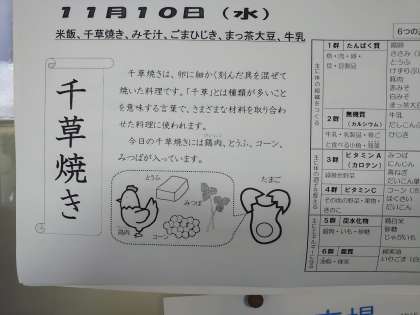 11月10日（水）
米飯、千草焼き、みそ汁、ごまひじき、まっ茶大豆、牛乳
千草焼き
千草焼きは、卵に細かく刻んだ具を混ぜて
焼いた料理です。「千草」とは種類が多いこと
を意味する言葉で、さまざまな材料を取り合わ
せた料理に使われます。
今日の千草焼きには鶏肉、とうふ、コーン、
みつばが入っています。
とうふ
みつば
たまご
鶏肉
コーン
6つの
1群 たんぱく質
魚・肉・卵・
豆・豆製品
とうふ
豚肉
赤みそ
白みそ
まっ茶大豆
2群 無機質
（カルシウム）
牛乳・乳製品・骨ご
と食べる小魚・海藻
牛乳
ひじき
3群 ビタミンA
（カロテン）
緑黄色野菜
みつば
にんじん
4群 ビタミンC
その他の野菜・果物・
きのこ
コーン
はくさい
だいこん
5群 炭水化物
穀類・いも・砂糖
精白米
砂糖
じゃがいも
6群 脂質
油脂・種実